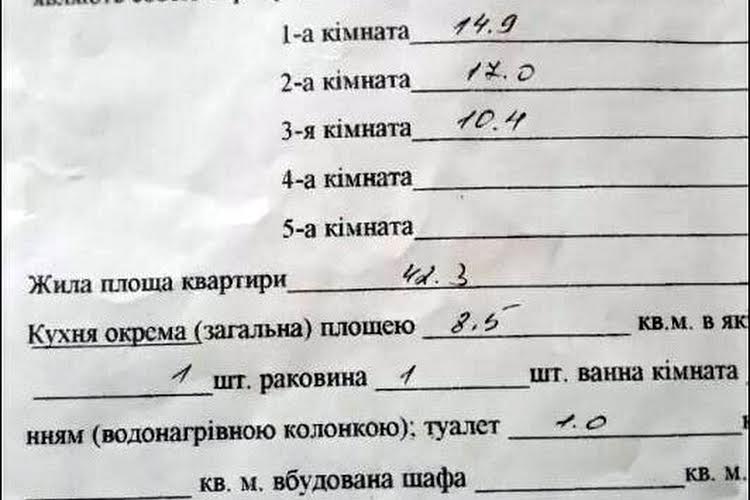 1-а кімната 14.9
2-а кімната 17.0
3-я кімната 10.4
4-а кімната
5-а кімната
Жила площа квартири 42.3
Кухня окрема (загальна) площею 8.5 кв.м. в
1 шт. раковина 1 шт. ванна кімната
нням (водонагрівною колонкою); туалет 1.0
кв. м. вбудована шафа кв. м.